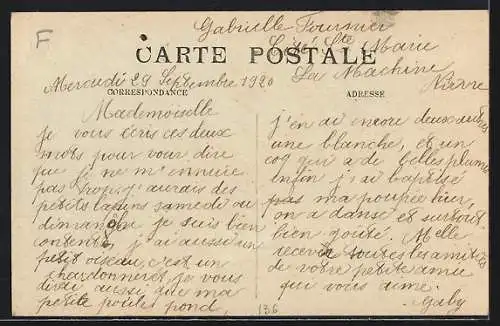 F
Gabrielle Fournier
Cité Ste Marie
CARTE POSTALE
La Machine
Nièvre
Mercredi 29 Septembre 1920
CORRESPONDANCE
ADRESSE
Mademoiselle
je vous écris ces deux
mots pour vous dire
que je ne m'ennuie
pas trop, j'aurais des
petits lapins samedi ou
dimanche je suis bien
contente, j'ai aussi un
petit oiseau, c'est un
chardonneret, je vous
dirai aussi que ma
petite poule pond,
j'en ai encore deux autres
une blanche, et un
coq qui a de belles plumes
Enfin j'ai baptisé
pas ma poupée hier,
on a dansé et surtout
bien goûté. Melle
recevez toutes les amitiés
de votre petite amie
qui vous aime.
Gaby
136